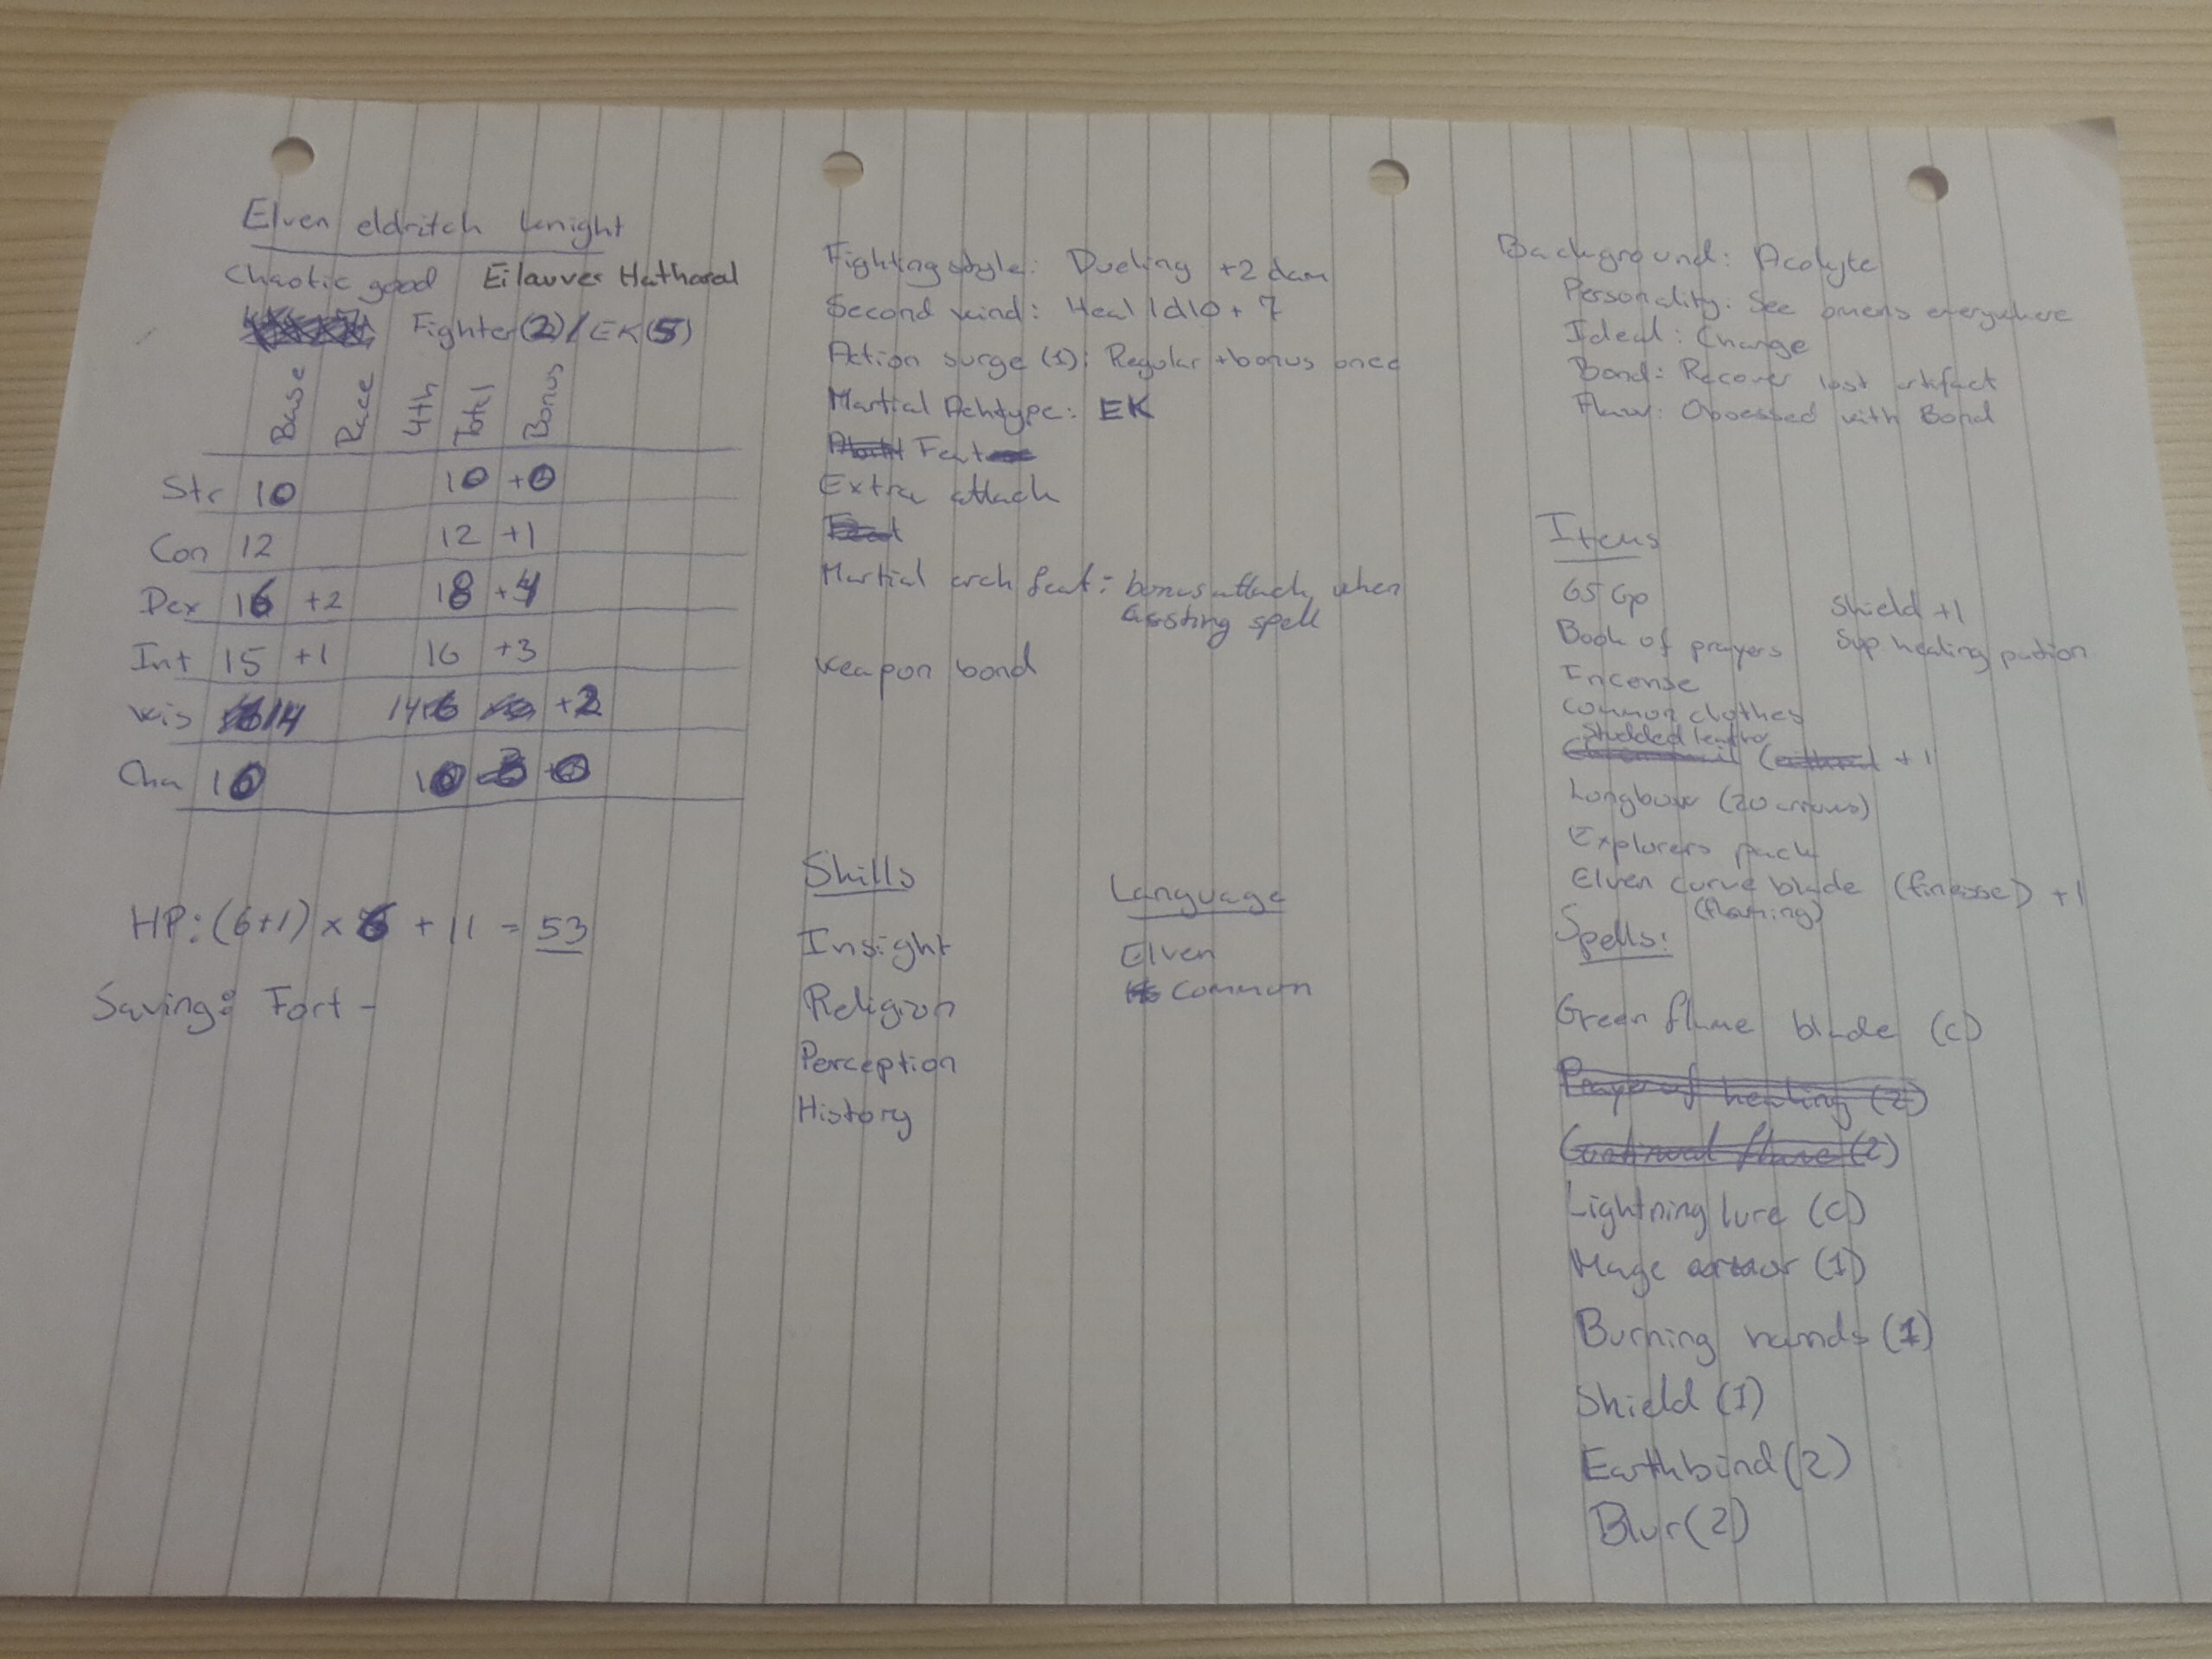 Elven eldritch knight
Chaotic good Eilauver Hatharal
Fighter(2)/EK(5)
Base Race 4th Total Bonus
Str 10 10 +0
Con 12 12 +1
Dex 16 +2 18 +4
Int 15 +1 16 +3
Wis 14 14 +2
Cha 10 10 +0
HP: (6+1) x 6 + 11 = 53
Saving: Fort -
Fighting style: Dueling +2 dam
Second wind: Heal 1d10 + 7
Action surge (1): Regular + bonus once
Martial Achtype: EK
Feat
Extra attack
Feat
Martial arch feat: bonus attack when
casting spell
Weapon bond
Skills
Insight
Religion
Perception
History
Language
Elven
Common
Background: Acolyte
Personality: See omens everywhere
Ideal: Change
Bond: Recover lost artifact
Flaw: Obsessed with Bond
Items
65 Gp
Book of prayers
Incense
Common clothes
Studded leather
+1
Longbow (20 arrows)
Explorers pack
Elven curve blade (finesse) +1
(flaming)
Shield +1
Sup healing potion
Spells:
Green flame blade (c)
Prayer of healing (2)
Continual flame (2)
Lightning lure (c)
Mage armor (1)
Burning hands (1)
Shield (1)
Earthbind (2)
Blur (2)